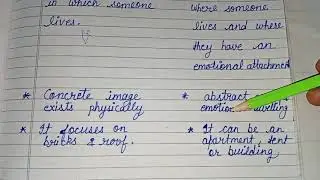 in which someone
lives.
where someone
lives and where
they have an
emotional attachment
* Concrete image
exists physically
* It focuses on
bricks & roof.
* abstract
emotion dwelling
* It can be an
apartment, tent
or building